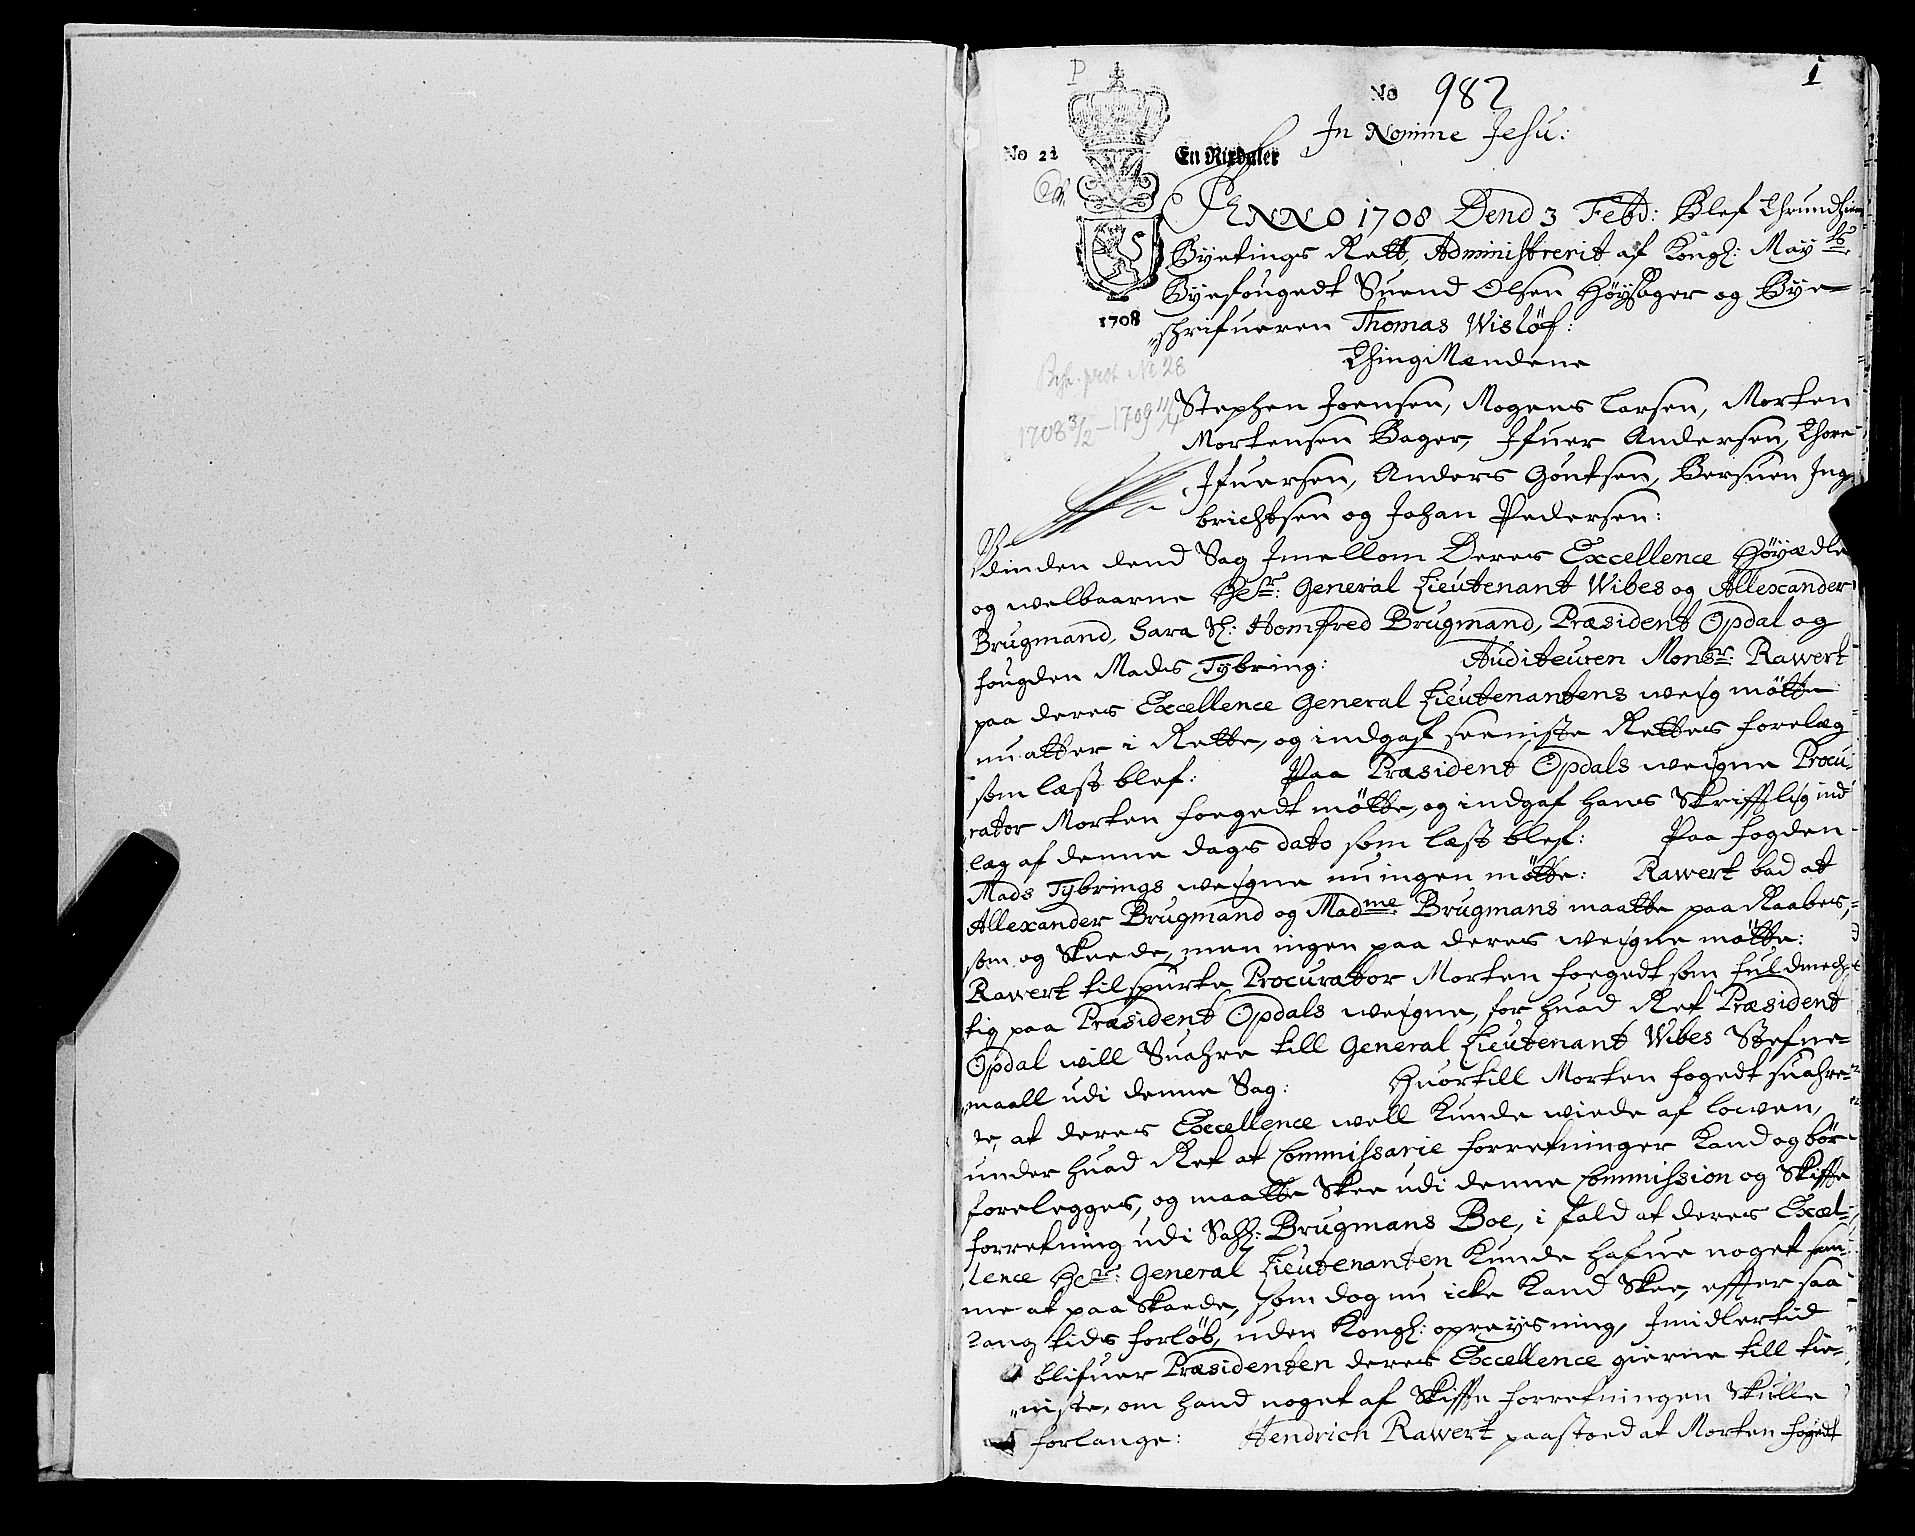 P
1
No 982
In Nomine Jesu:
No 21
En Rixdaler
ANNO 1708 Dend 3 Febr: Blef Thrundhiem
Byetings Rett, Administrerit af Kongl: May ts
Byefougedt Suend Olsen Høysager og Bye-
schrifueren Thomas Wisløf:
1708
Thing Mændene
Byt. prot. No 28
1708 3/2 - 1709 11/4
Stephen Joensen, Mogens Larsen, Morten
Mortensen Bager, Ifuer Andersen, Thore
Ifuersen, Anders Gøutsen, Bersuen Ing-
brichtsen og Johan Pedersen:
Udinden dend Sag Jmellom Deres Excellence Høyædle
og welbaarne Her: General Lieutenant Wibes og Allexander
Brugmand, Sara Sl: Homfred Brugmand, Præsident Opdal og
fougden Mads Tybring: Auditeuren Monsr: Rawert
paa deres Excellence General Lieutenantens weig møtte
nu atter i Rette, og indgaf seeniste Rettes forelæg
som læst blef: Paa Præsident Opdals weigne Procu-
rator Morten foegedt møtte, og indgaf hans Skrifftlig ind
læg af denne dags dato som læst blef: Paa fogden
Mads Tybrings weigne nu ingen møtte: Rawert bad at
Allexander Brugmand og Madme Brugmans maatte paa Raabes,
som og Skeede, men ingen paa deres weigne møtte:
Rawert tilspurte Procurator Morten foegedt som fuldmech-
tig paa Præsident Opdals weigne, for huad Ret Præsident
Opdal will Suahre till General Lieutenant Wibes Stefne-
maall udi denne Sag: Huortill Morten fogedt suahre-
te, at deres Excellence well kunde wiede af lowen,
under huad Ret at Commissarie forretninger kand og bør
forelegges, og maatte Skee udi denne Commission og Skiffte
forretning udi Sahl: Brugmans Boe, i fald at deres Excel-
lence Her: General Lieutenanten kunde hafue noget sam-
me at paa Skaede, som dog nu icke kand Skee, effter saa
lang tids forløb, uden Kongl: opreysning, Jmidlertid
blifuer Præsidenten deres Excellence gierne till tie-
niste, om hand noget af Skiffte forretningen Skulle
forlange: Hendrich Rawert paastoed at Morten fogedt